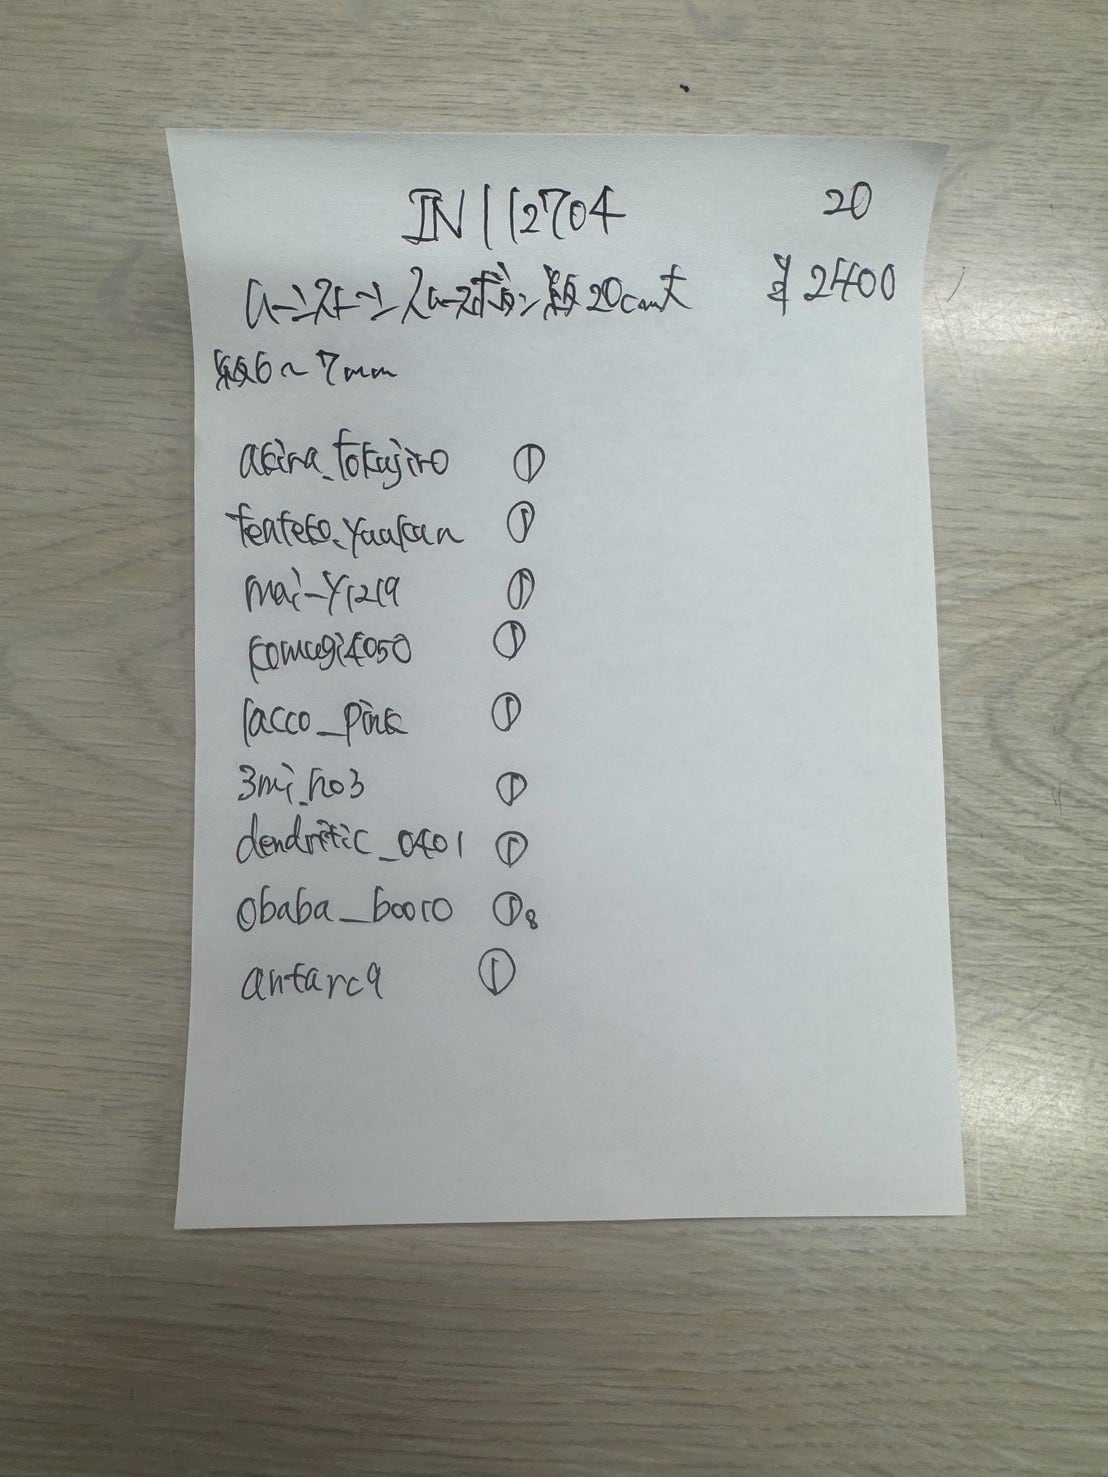 IN112704 20
ムーンストーンスムースボタン 約20cm丈 ¥2400
約6~7mm
akira_tokujiro ①
tenteko.yuukan ①
mai-y1219 ①
komugi4050 ①
lacco_pink ①
3mi.ho3 ①
dendritic_0401 ①
obaba_booro ①8
antarc9 ①